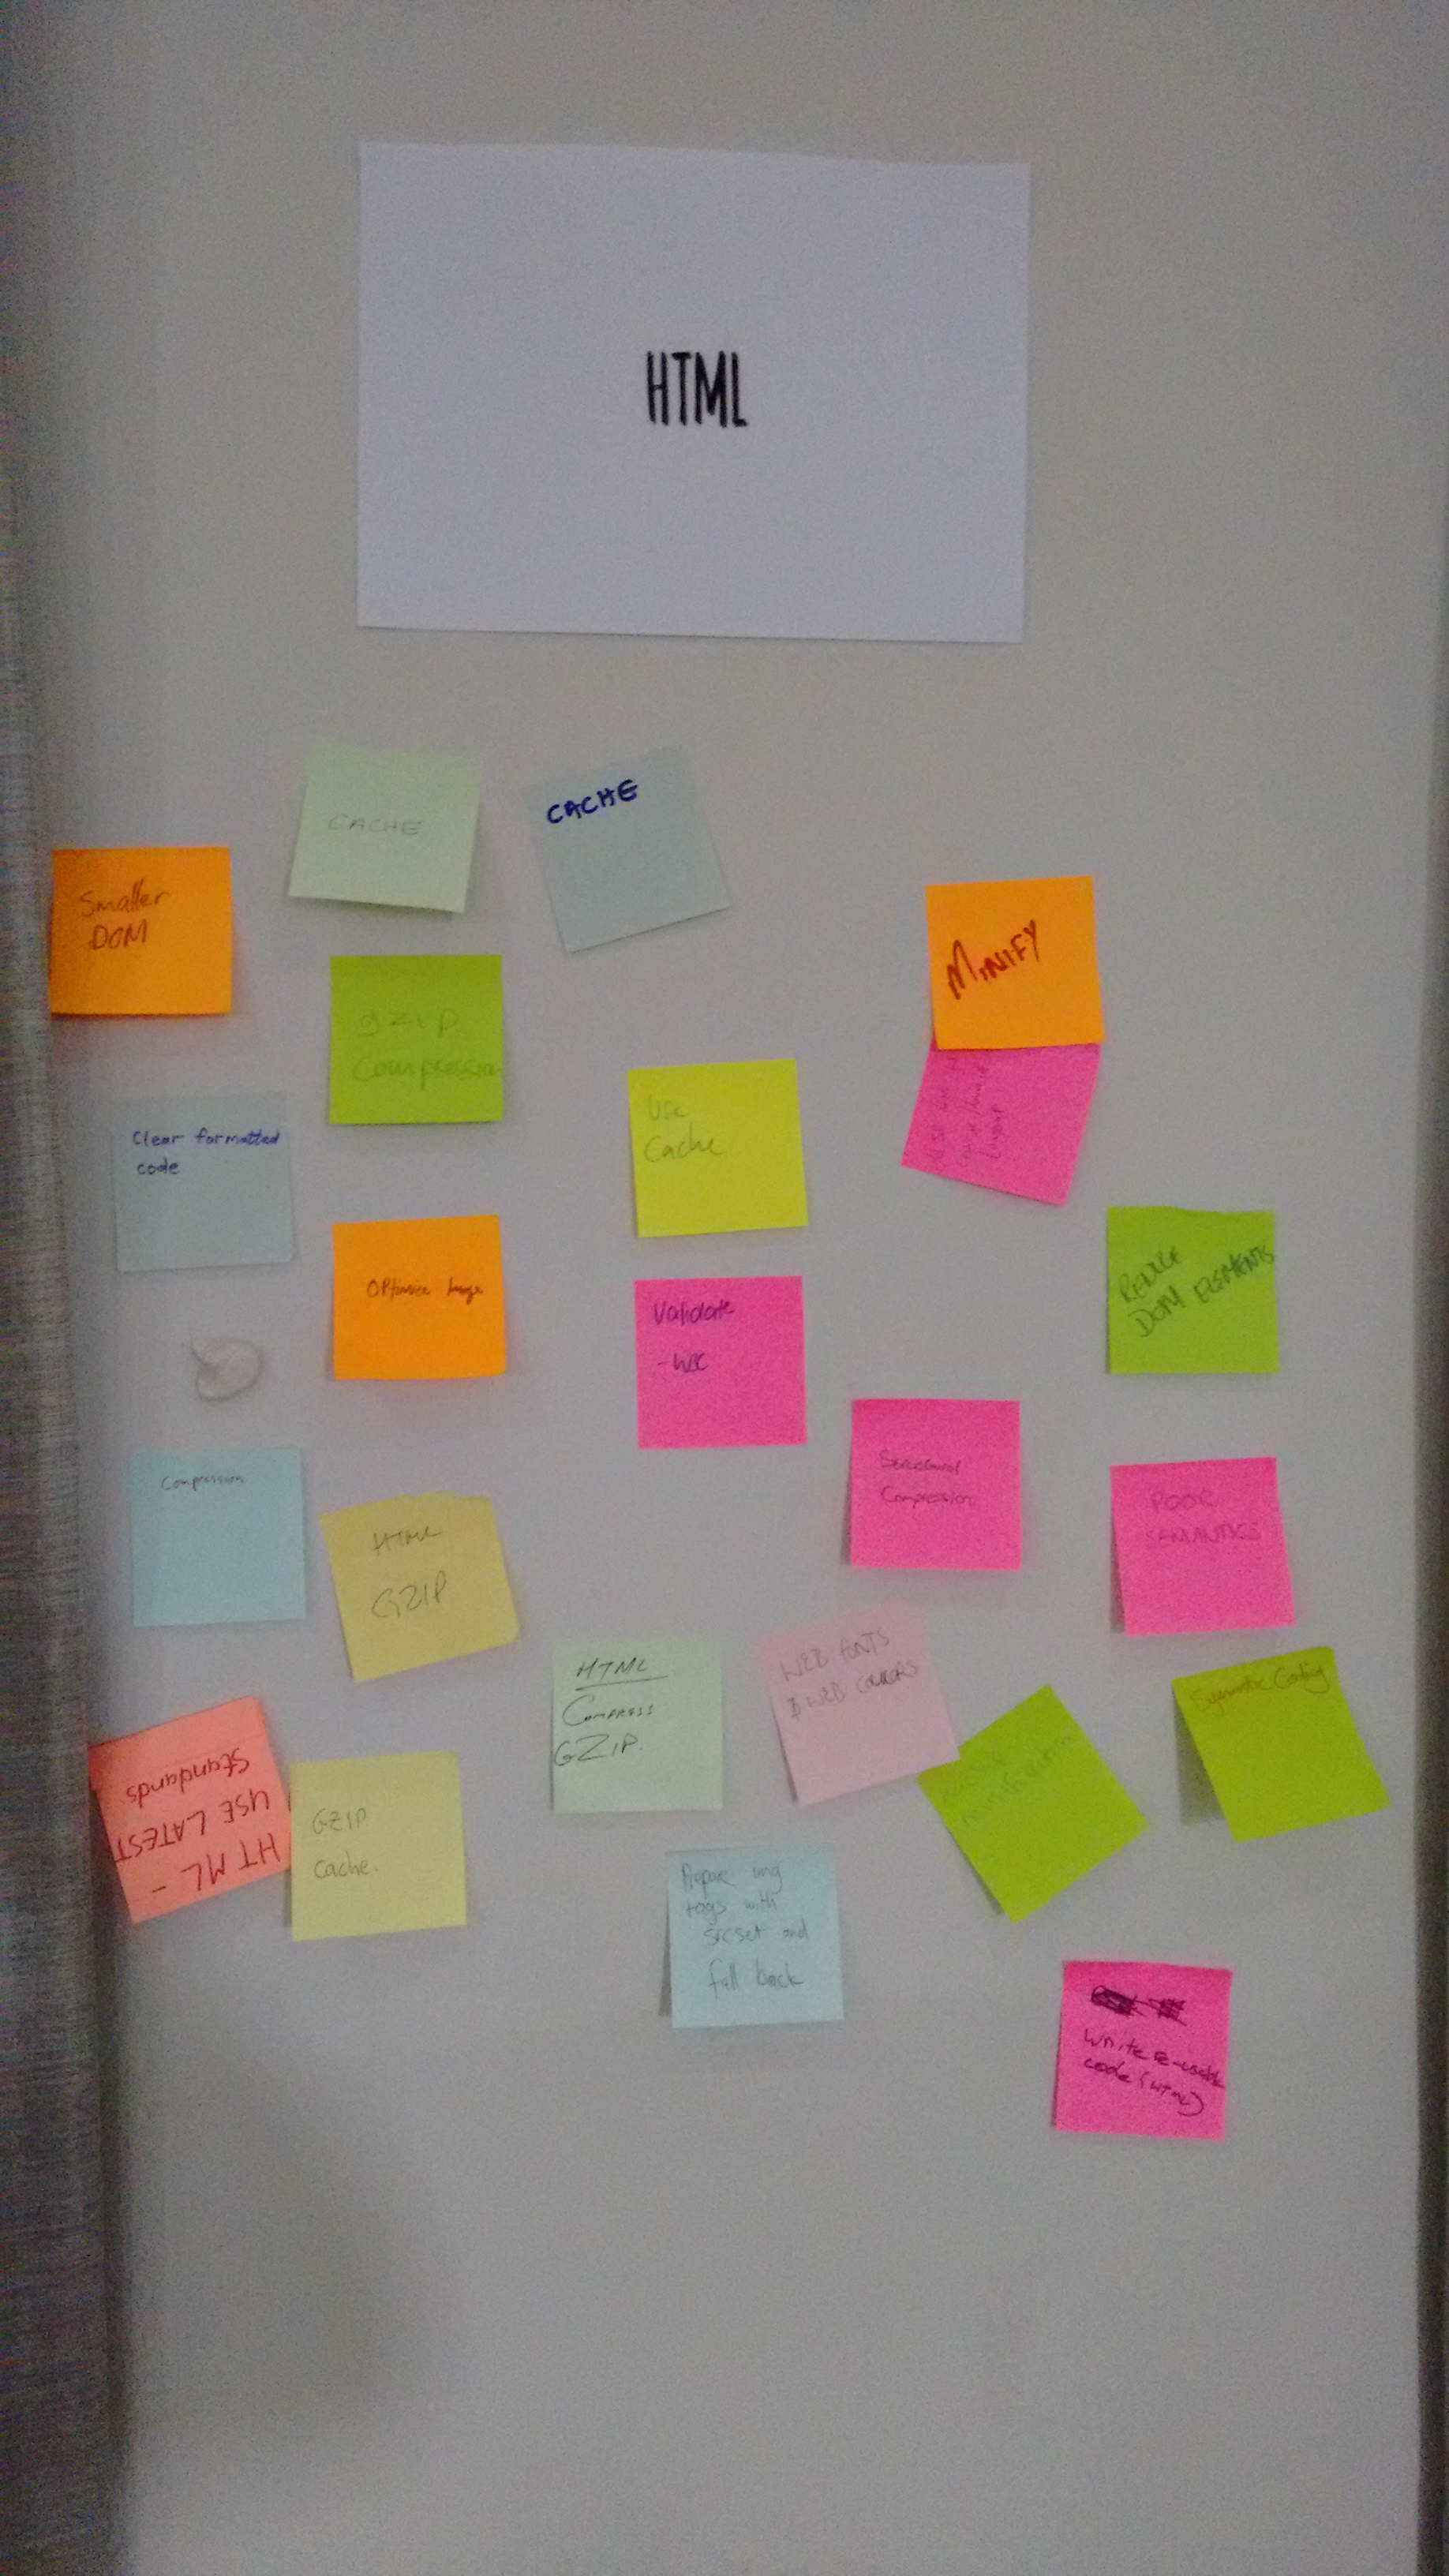 HTML
CACHE
CACHE
Smaller
DOM
MINIFY
gzip
Compression
Use
Cache
Clear formatted
code
Optimise Image
REDUCE
DOM ELEMENTS
Validate
- W3C
Compression
Structural
Compression
POOR
SEMANTICS
HTML
GZIP
HTML
COMPRESS
GZIP.
WEB FONTS
& WEB COLORS
HTML -
USE LATEST
Standards
GZIP
Cache.
Coding
Prepare img
tags with
srcset and
fall back
Write re-usable
code (HTML)